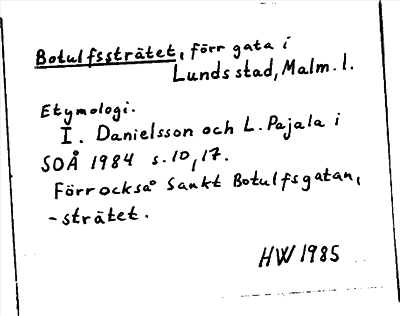 Botulfssträtet, förr gata i
Lunds stad, Malm. l.
Etymologi.
I. Danielsson och L. Pajala i
SOÅ 1984 s. 10, 17.
Förr också Sankt Botulfsgatan,
-strätet.
HW 1985